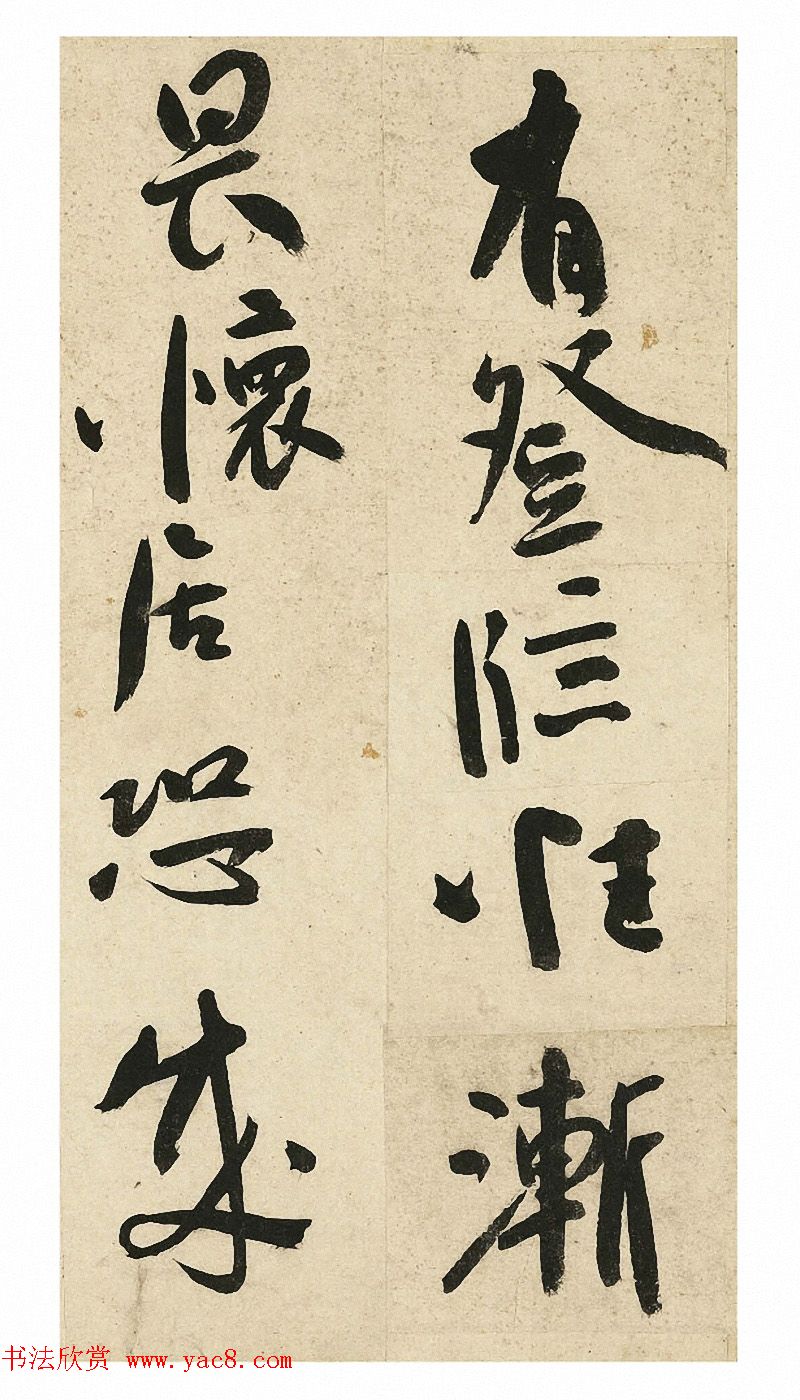 有登臨惟漸
畏懷居恐
书法欣赏 www.yac8.com